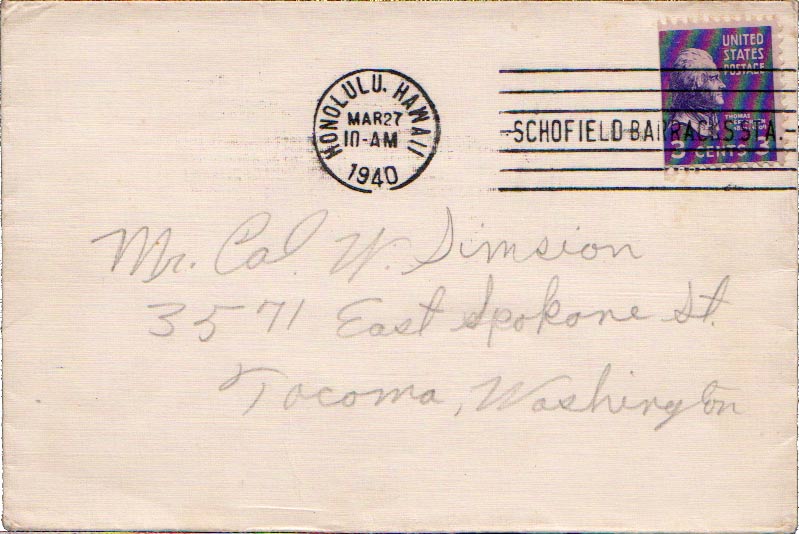 UNITED
STATES
POSTAGE
HONOLULU, HAWAII
MAR 27
10-AM
1940
-SCHOFIELD BARRACKS STA.-
THOMAS
JEFFERSON
3 CENTS 3
Mr. Cal. W. Simsion
3571 East Spokane St.
Tacoma, Washington